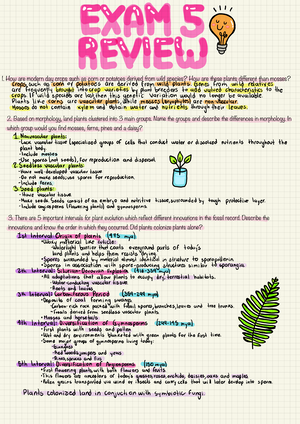 EXAM 5
REVIEW
1. How are modern day crops such as corn or potatoes derived from wild species? How are these plants different than mosses?
Crops such as corn or potatoes are derived from wild plants. Genes from wild relatives
are frequently brought into crop varieties by plant breeders to add valued characteristics to the
crops. If wild species are lost then this genetic variation would no longer be available.
Plants like corns are vascular plants while mosses (bryophytes) are non vascular.
Mosses do not contain xylem and obtain water and nutrients through their leaves.
2. Based on morphology, land plants clustered into 3 main groups. Name the groups and describe the differences in morphology. In
which group would you find mosses, ferns, pines and a daisy?
1. Nonvascular plants:
- Lack vascular tissue (specialized groups of cells that conduct water or dissolved nutrients throughout the
plant body
- Include mosses
- Use spores (not seeds), for reproduction and dispersal
2. Seedless vascular plants:
- Have vascular tissue
- Do not make seeds, use spores for reproduction.
- Include ferns
3. Seed plants:
- Have vascular tissue
- Make seeds. Seeds consist of an embryo and nutritive tissue, surrounded by tough protective layer.
- Include angiosperms (flowering plants) and gymnosperms
3. There are 5 important intervals for plant evolution which reflect different innovations in the fossil record. Describe the
innovations and know the order in which they occurred. Did plants colonize plants alone?
1st Interval: Origin of plants (475 mya)
- Waxy material like cuticle:
- Watertight barrier that coats overground parts of today's
land plants and helps them resist drying.
- Spores surrounded by material almost identical in structure to sporopollenin
- Spores in association with spore-producing structures similar to sporangia.
2nd Interval: Silurian-Devonian Explosion (416-359 mya)
- All adaptations that allow plants to occupy dry, terrestrial habitats.
- Water conducting vascular tissue
- Roots and leaves
3rd Interval: Carboniferous Period (359-299 mya)
- Deposits of coal forming swamps
- Carbon-rich rock packed with fossil spores, branches, leaves and tree trunks.
- Fossils derived from seedless vascular plants
- Mosses and horsetails
4th Interval: Diversification of Gymnosperms (299-145 mya)
- First plants with seeds and pollen
- Wet and dry environments blanketed with green plants for the first time.
- Some major groups of gymnosperms living today:
- Ginkgoes
- Redwoods, junipers and yews
- Pines, spruces and firs
5th Interval: Diversification of Angiosperms (150 mya)
- First flowering plants with both flowers and fruits
- This flowers are ancestors of today's grasses, roses, orchids, daisies, oaks and maples
- Pollen grains transported via wind or insects and carry cells that will later develop into sperm.
Plants colonized land in conjuction with symbiotic fungi.